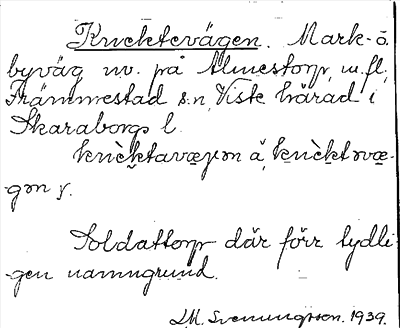 Knektevägen. Mark- o.
byväg nv. på Almestorp, m.fl.,
Främmestad s:n, Viste härad i
Skaraborgs l.
knèktavægən å, knèktəvæ-
gən ɣ.
Soldattorp där förr tydli-
gen namngrund.
I.M. Svenungsson. 1939.